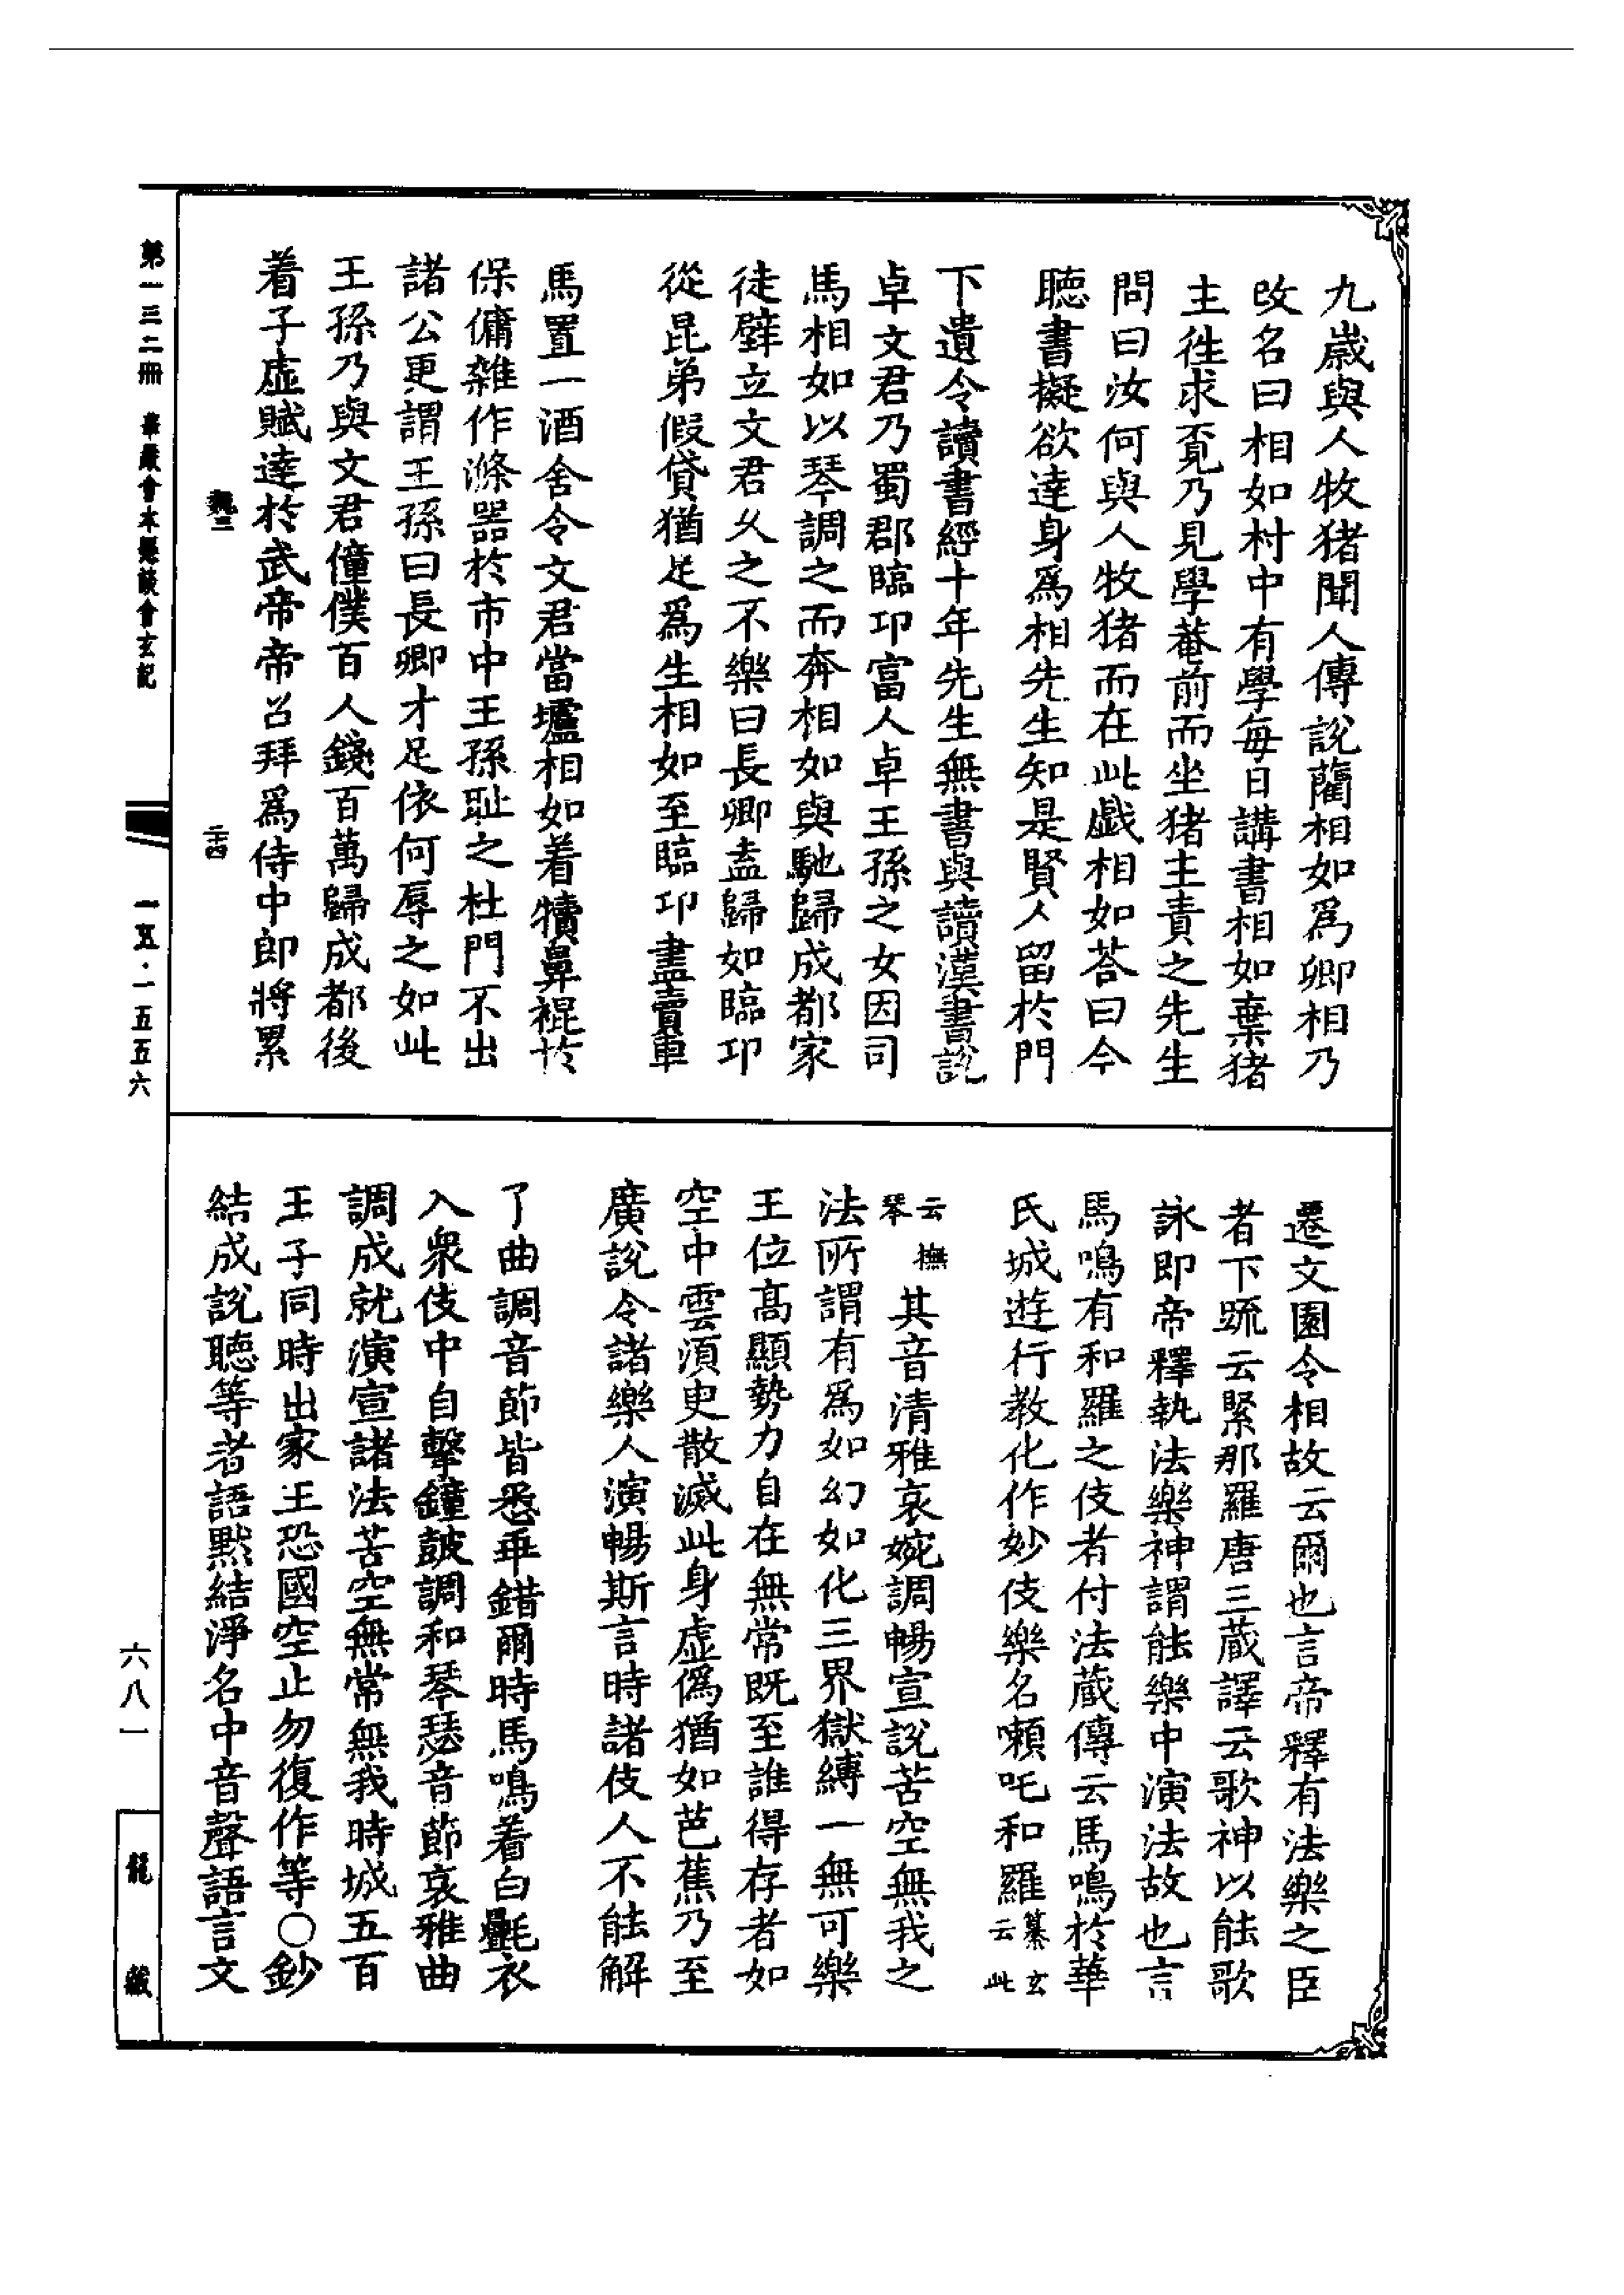 九歲與人牧猪聞人傳說藺相如爲卿相乃
改名曰相如村中有學每日講書相如棄猪
主徃求覓乃見學菴前而坐猪主責之先生
問曰汝何與人牧猪而在此戯相如荅曰今
聴書擬欲達身爲相先生知是賢人留於門
下遺令讀書經十年先生無書與讀漢書說
卓文君乃蜀郡臨卭富人卓王孫之女因司
馬相如以琴調之而奔相如與馳歸成都家
徒壁立文君乆之不樂曰長卿盍歸如臨卭
從昆弟假貸猶足爲生相如至臨卭盡賣車
馬置一酒舍令文君當壚相如着犢鼻裩於
保傭雜作滌器於市中王孫耻之杜門不出
諸公更謂王孫曰長卿才足依何辱之如此
王孫乃與文君僮僕百人錢百萬歸成都後
着子虛賦達於武帝帝召拜爲侍中郎將累
遷文園令相故云爾也言帝釋有法樂之臣
者下䟽云緊那羅唐三藏譯云歌神以能歌
詠即帝釋執法樂神謂能樂中演法故也言
馬鳴有和羅之伎者付法藏傳云馬鳴於華
氏城遊行教化作妙伎樂名嚬吒和羅纂玄云此
云撫琴其音清雅哀婉調暢宣說苦空無我之
法所謂有爲如幻如化三界獄縛一無可樂
王位髙顯勢力自在無常既至誰得存者如
空中雲須㬰散滅此身虛僞猶如芭蕉乃至
廣說令諸樂人演暢斯言時諸伎人不能解
了曲調音節皆悉乖錯爾時馬鳴着白㲲衣
入衆伎中自擊鐘鼓調和琴瑟音節哀雅曲
調成就演宣諸法苦空無常無我時城五百
王子同時出家王恐國空止勿復作等○鈔
結成說聴等者語默結淨名中音聲語言文
魏三
二十四
第一三二冊 華嚴會本懸談會玄記
一五五·一五五六
六八一
龍藏